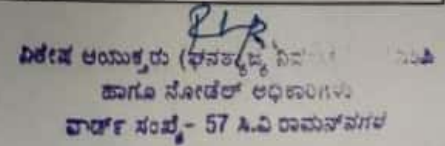 ವಿಶೇಷ ಆಯುಕ್ತರು (ಘನತ್ಯಾಜ್ಯ
ಹಾಗೂ ನೋಡೆಲ್ ಅಧಿಕಾರಿಗಳು
ವಾರ್ಡ್ ಸಂಖ್ಯೆ- 57 ಸಿ.ವಿ ರಾಮನ್‌ನಗರ